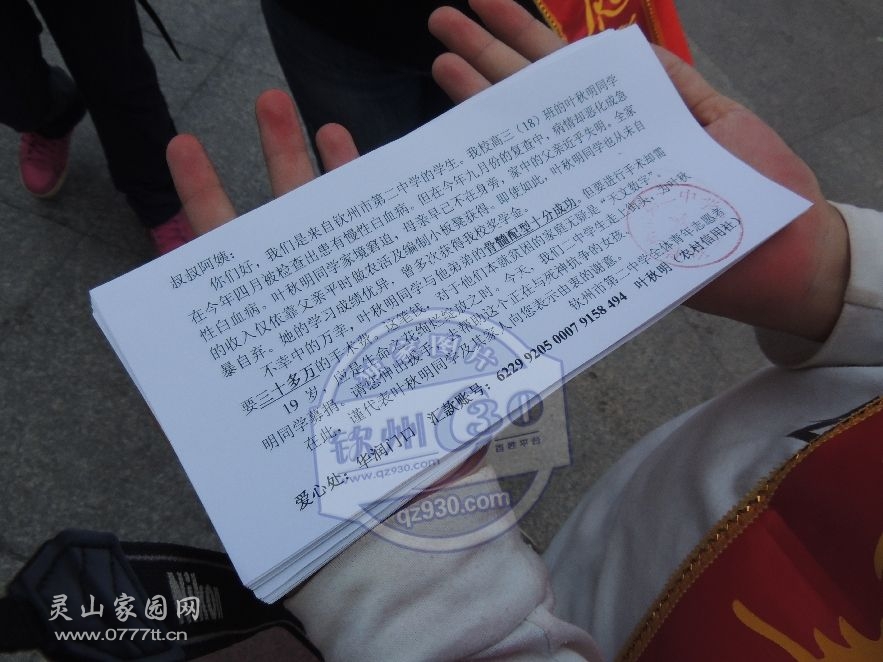 叔叔阿姨:
你们好,我们是来自钦州市第二中学的学生。我校高三(18)班的叶秋明同学
在今年四月被检查出患有慢性白血病。但在今年九月份的复查中,病情却恶化成急
性白血病。叶秋明同学家境窘迫,母亲早已不在身旁,家中的父亲近乎失明。全家
的收入仅依靠父亲平时做农活及编制小板凳获得。即使如此,叶秋明同学也从未自
暴自弃。她的学习成绩优异,曾多次获得我校奖学金。
不幸中的万幸,叶秋明同学与他弟弟的骨髓配型十分成功。但要进行手术却需
要三十多万的手术费。这笔钱,对于他们本就贫困的家境无疑是“天文数字”。
19岁,应是生命之花绚烂绽放之时。今天,我们二中学生走上街头,为叶秋
明同学募捐。请您伸出援手,帮助这个正在与死神抗争的女孩。
在此,谨代表叶秋明同学及其家人向您表示由衷的谢意。
钦州市第二中学全体青年志愿者
爱心处:华润门口 汇款账号:6229 9205 0007 9158 494 叶秋明(农村信用社)
钦州930
百姓平台
www.qz930.com
qz930.com
Nikon
灵山家园网
www.0777tt.cn